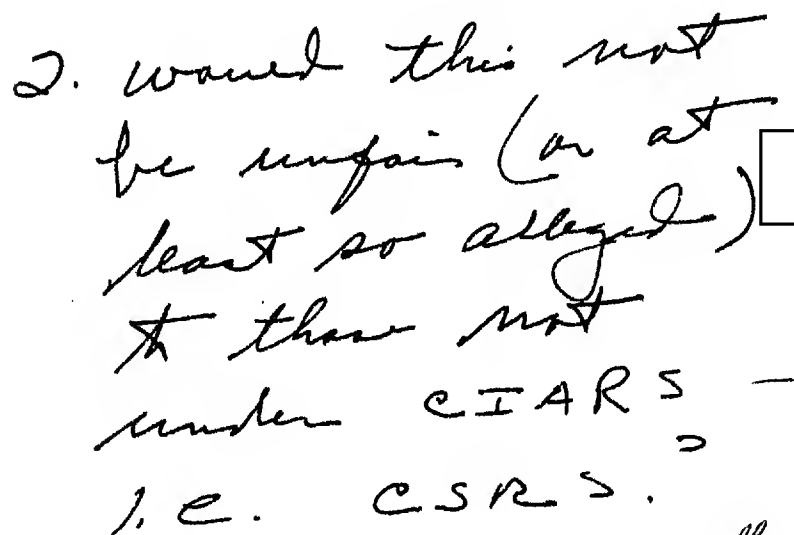 2. would this not
be unfair (or at
least so alleged)
to those not
under CIARS —
i.e. CSRS. ?